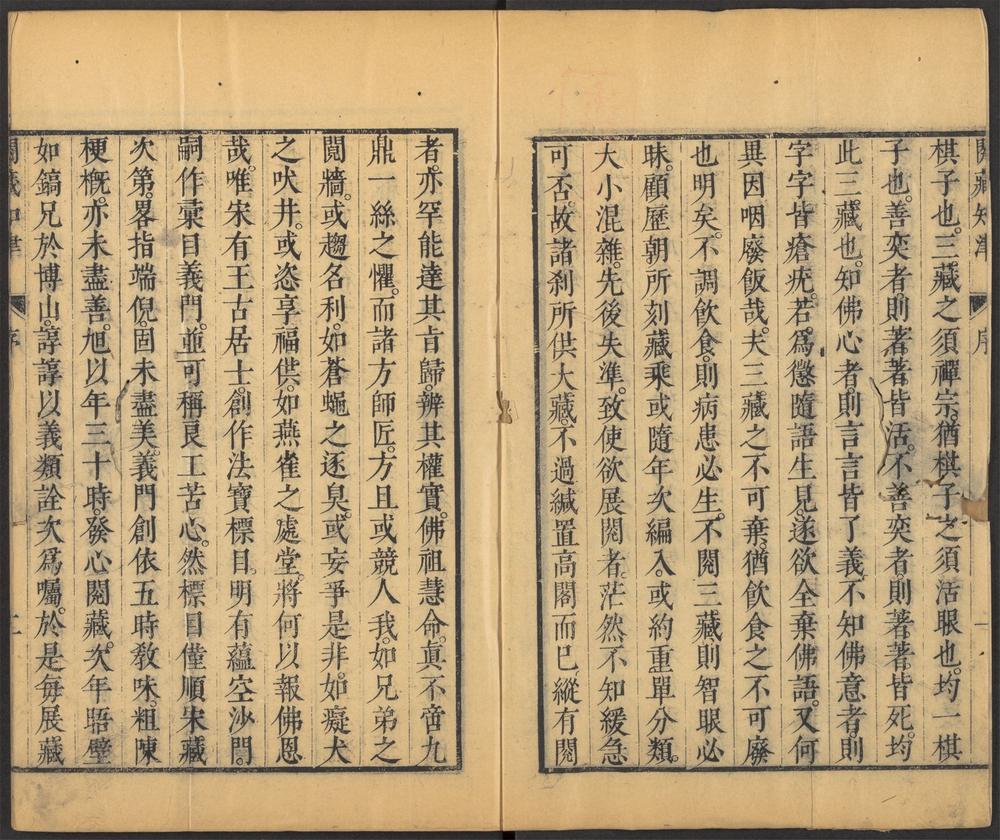 閱藏知津 序 一
棋子也。三藏之須禪宗。猶棋子之須活眼也。均一棋
子也。善奕者則著著皆活。不善奕者。則著著皆死。均
此三藏也。知佛心者。則言言皆了義。不知佛意者。則
字字皆瘡疣。若爲懲隨語生見。遂欲全棄佛語。又何
異因咽廢飯哉。夫三藏之不可棄。猶飲食之不可廢
也明矣。不調飲食。則病患必生。不閱三藏。則智眼必
昧。顧歷朝所刻藏乘。或隨年次編入。或約重單分類。
大小混雜。先後失準。致使欲展閱者。茫然不知緩急
可否。故諸刹所供大藏。不過緘置高閣而巳。縱有閱
者。亦罕能達其旨歸。辨其權實。佛祖慧命。眞不啻九
鼎一絲之懼。而諸方師匠。方且或競人我。如兄弟之
䦧牆。或趨名利。如蒼蠅之逐臭。或妄爭是非。如癡犬
之吠井。或恣享福供。如燕雀之處堂。將何以報佛恩
哉。唯宋有王古居士。創作法寶標目。明有蘊空沙門。
嗣作彚目義門。並可稱良工苦心。然標目僅順宋藏
次第。畧指端倪。固未盡美。義門創依五時敎味。粗陳
梗槪。亦未盡善。旭以年三十時。發心閱藏。次年晤壁
如鎬兄於博山。諄諄以義類詮次爲囑。於是每展藏
閱藏知津 序 二